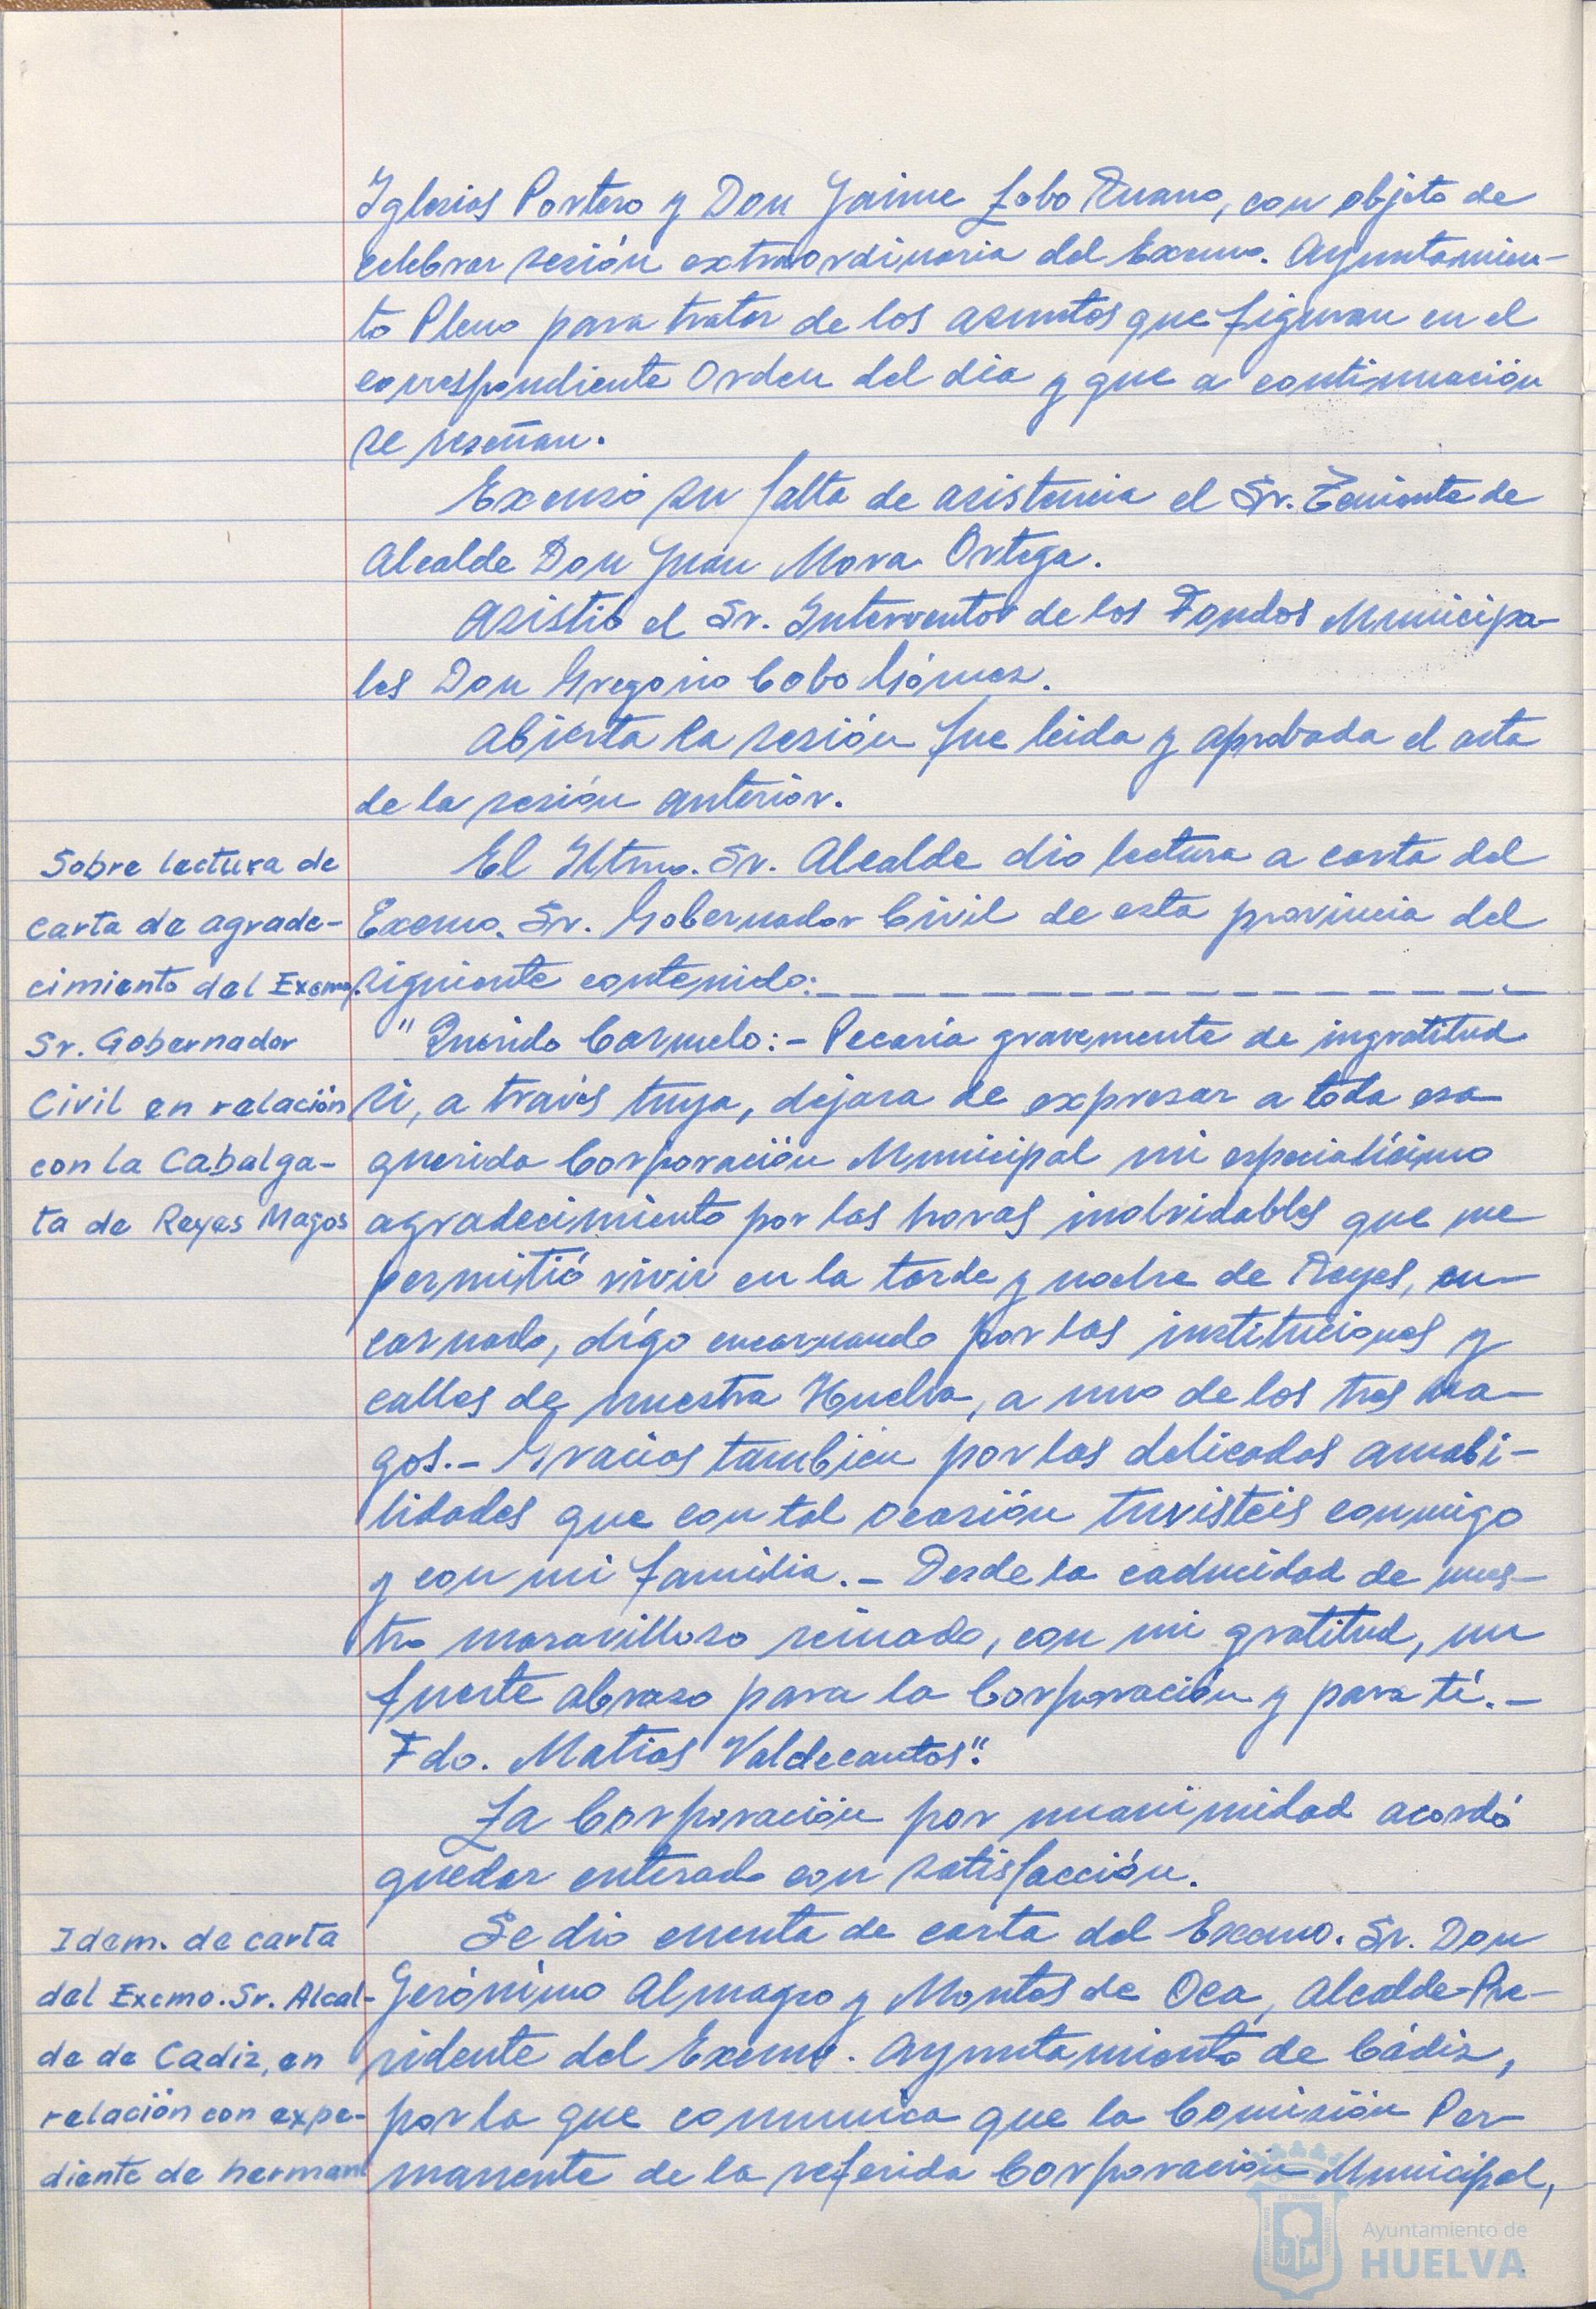 Iglesias Portero y Don Jaime Lobo Ruano, con objeto de
celebrar sesión extraordinaria del Excmo. Ayuntamien-
to Pleno para tratar de los asuntos que figuran en el
correspondiente Orden del dia y que a continuación
se reseñan.
Excusó su falta de asistencia el Sr. Teniente de
Alcalde Don Juan Mora Ortega.
Asistió el Sr. Interventor de los Fondos Municipa-
les Don Gregorio Cobo Gómez.
Abierta la sesión fue leida y aprobada el acta
de la sesión anterior.
Sobre lectura de
carta de agrade-
cimiento del Excmo.
Sr. Gobernador
Civil en relación
con la Cabalga-
ta de Reyes Magos
El Iltmo. Sr. Alcalde dio lectura a carta del
Excmo. Sr. Gobernador Civil de esta provincia del
siguiente contenido:
"Querido Carmelo:- Pecaria gravemente de ingratitud
si, a través tuya, dejara de expresar a toda esa
querida Corporación Municipal mi especialísimo
agradecimiento por las horas inolvidables que me
permitió vivir en la tarde y noche de Reyes, en-
carnado, dígo encarnando por las instituciones y
calles de nuestra Huelva, a uno de los tres ma-
gos.- Gracias tambien por las delicadas amabi-
lidades que con tal ocasión tuvisteis conmigo
y con mi familia.- Desde la caducidad de nues-
tro maravilloso reinado, con mi gratitud, un
fuerte abrazo para la Corporación y para tí.-
Fdo. Matias Valdecantos".
La Corporación por unanimidad acordó
quedar enterada con satisfacción.
Idem. de carta
del Excmo. Sr. Alcal-
de de Cadiz, en
relación con expe-
diente de hermana
Se dio cuenta de carta del Excmo. Sr. Don
Gerónimo Almagro y Montes de Oca, Alcalde-Pre-
sidente del Excmo. Ayuntamiento de Cádiz,
por la que comunica que la Comisión Per-
manente de la referida Corporación Municipal,
Ayuntamiento de
HUELVA